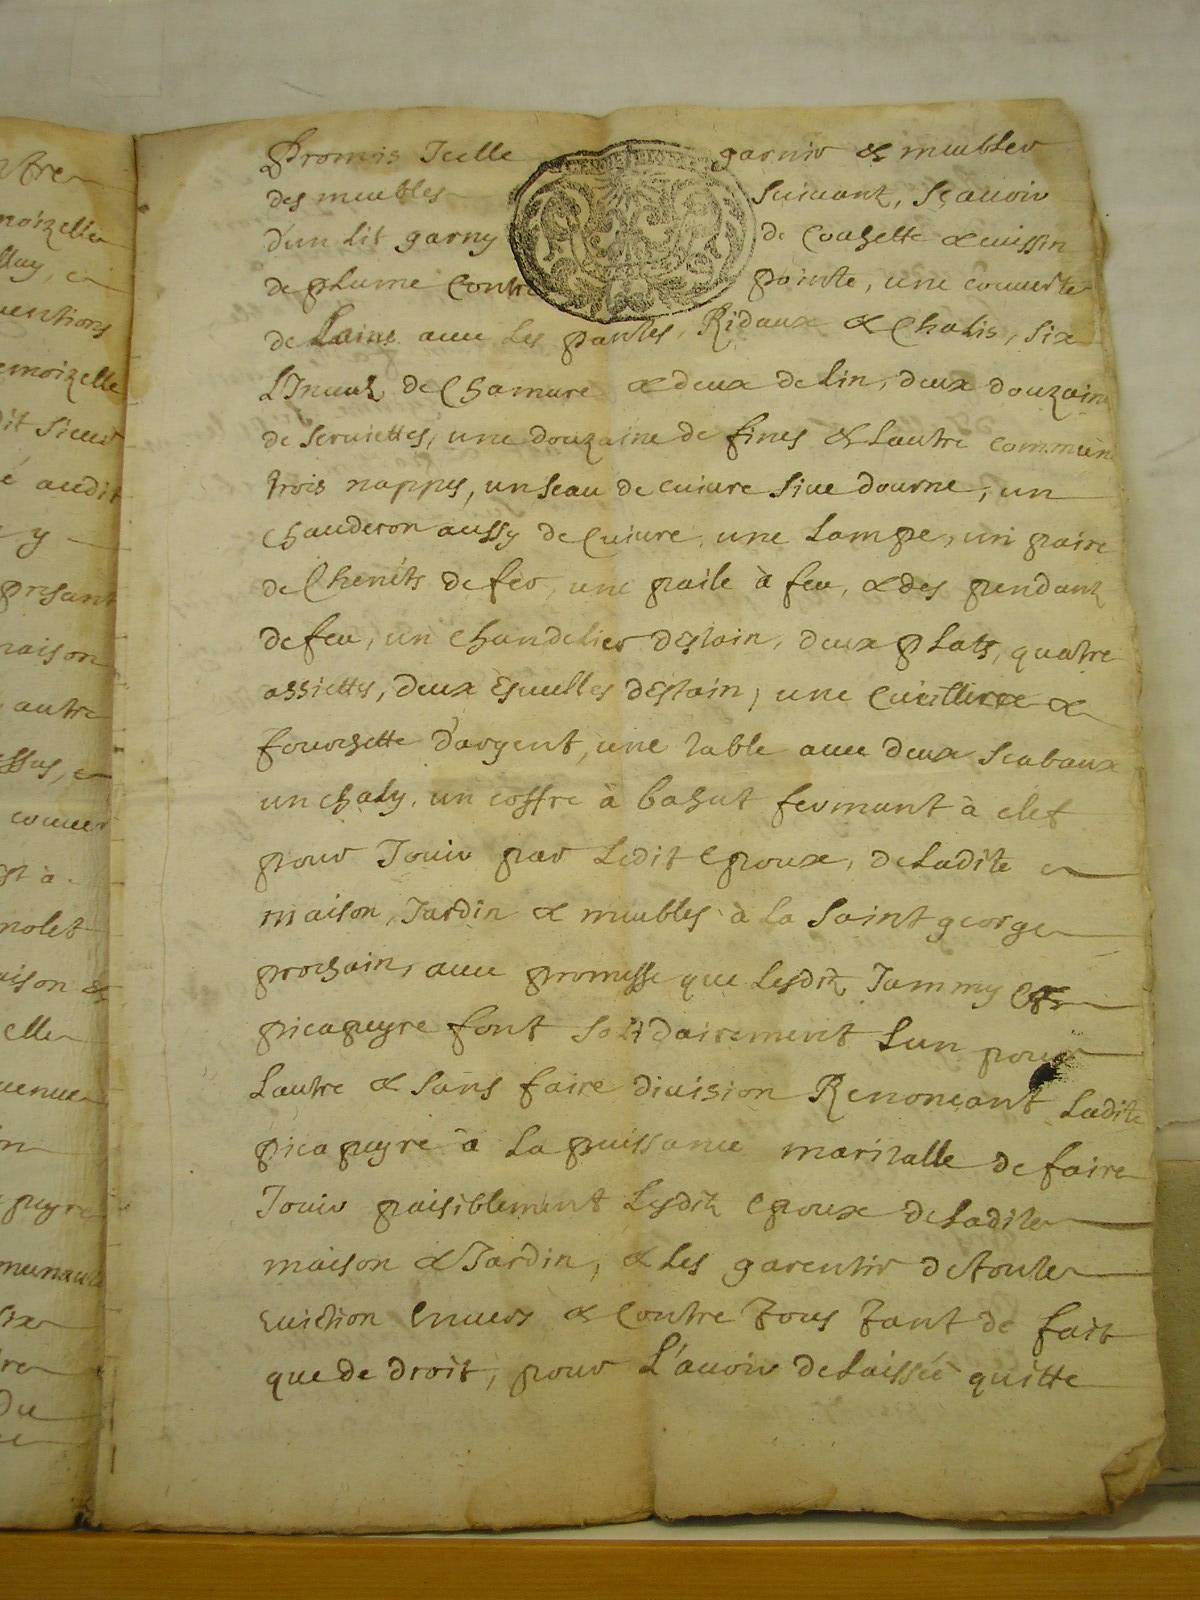 Promis Icelle garnir & meubler
des meubles suivant, sçavoir
d'un lit garny de Couhette & cuissin
de plume Contre pointe, une couverte
de Laine avec les pantes, Ridaux & Chalis, six
Linceulz de Chamure & deux de lin, deux douzaine
de serviettes, une douzaine de fines & Lautre commune
trois nappes, un seau de cuivre sive dourne, un
chauderon aussy de Cuivre, une Lampe, un paire
de Chenéts de fer, une paile à feu, & des pendant
de feu, un chandelier destain, deux plats, quatre
assiettes, deux Escuelles d'Estain, une Cuilliere &
fourchette d'argent, une table avec deux scabaux
un chaly, un coffre à bahut fermant à clef
pour Jouir par Ledit Epoux, de Ladite
maison, Jardin & meubles à La Saint george
prochain, avec promesse que Lesditz Jammy &
picapeyre font solidairement Lun pour
Lautre & sans faire division Renonçant Ladite
picapeyre à La puissance maritalle de faire
Jouir paisiblement Lesditz Epoux de Ladite
maison & Jardin, & les garentir de toute
Eviction Envers & Contre Tous Tant de fait
que de droit, pour L'avoir delaissée quitte